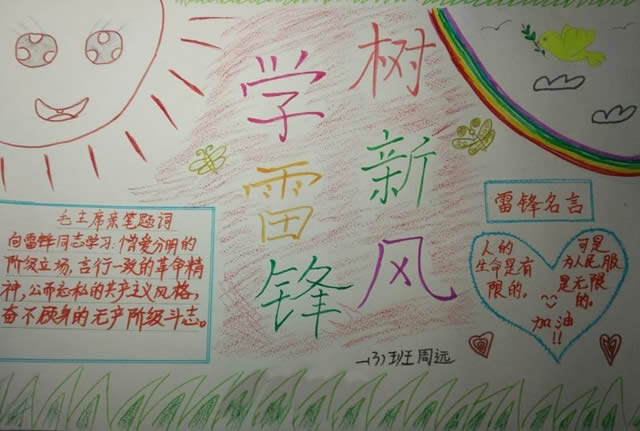 学雷锋
树新风
毛主席亲笔题词
向雷锋同志学习:憎爱分明的
阶级立场,言行一致的革命精
神,公而忘私的共产主义风格,
奋不顾身的无产阶级斗志。
雷锋名言
人的
生命是有
限的。
可是
为人民服
是无限
的。
加油
!!
一(3)班周远